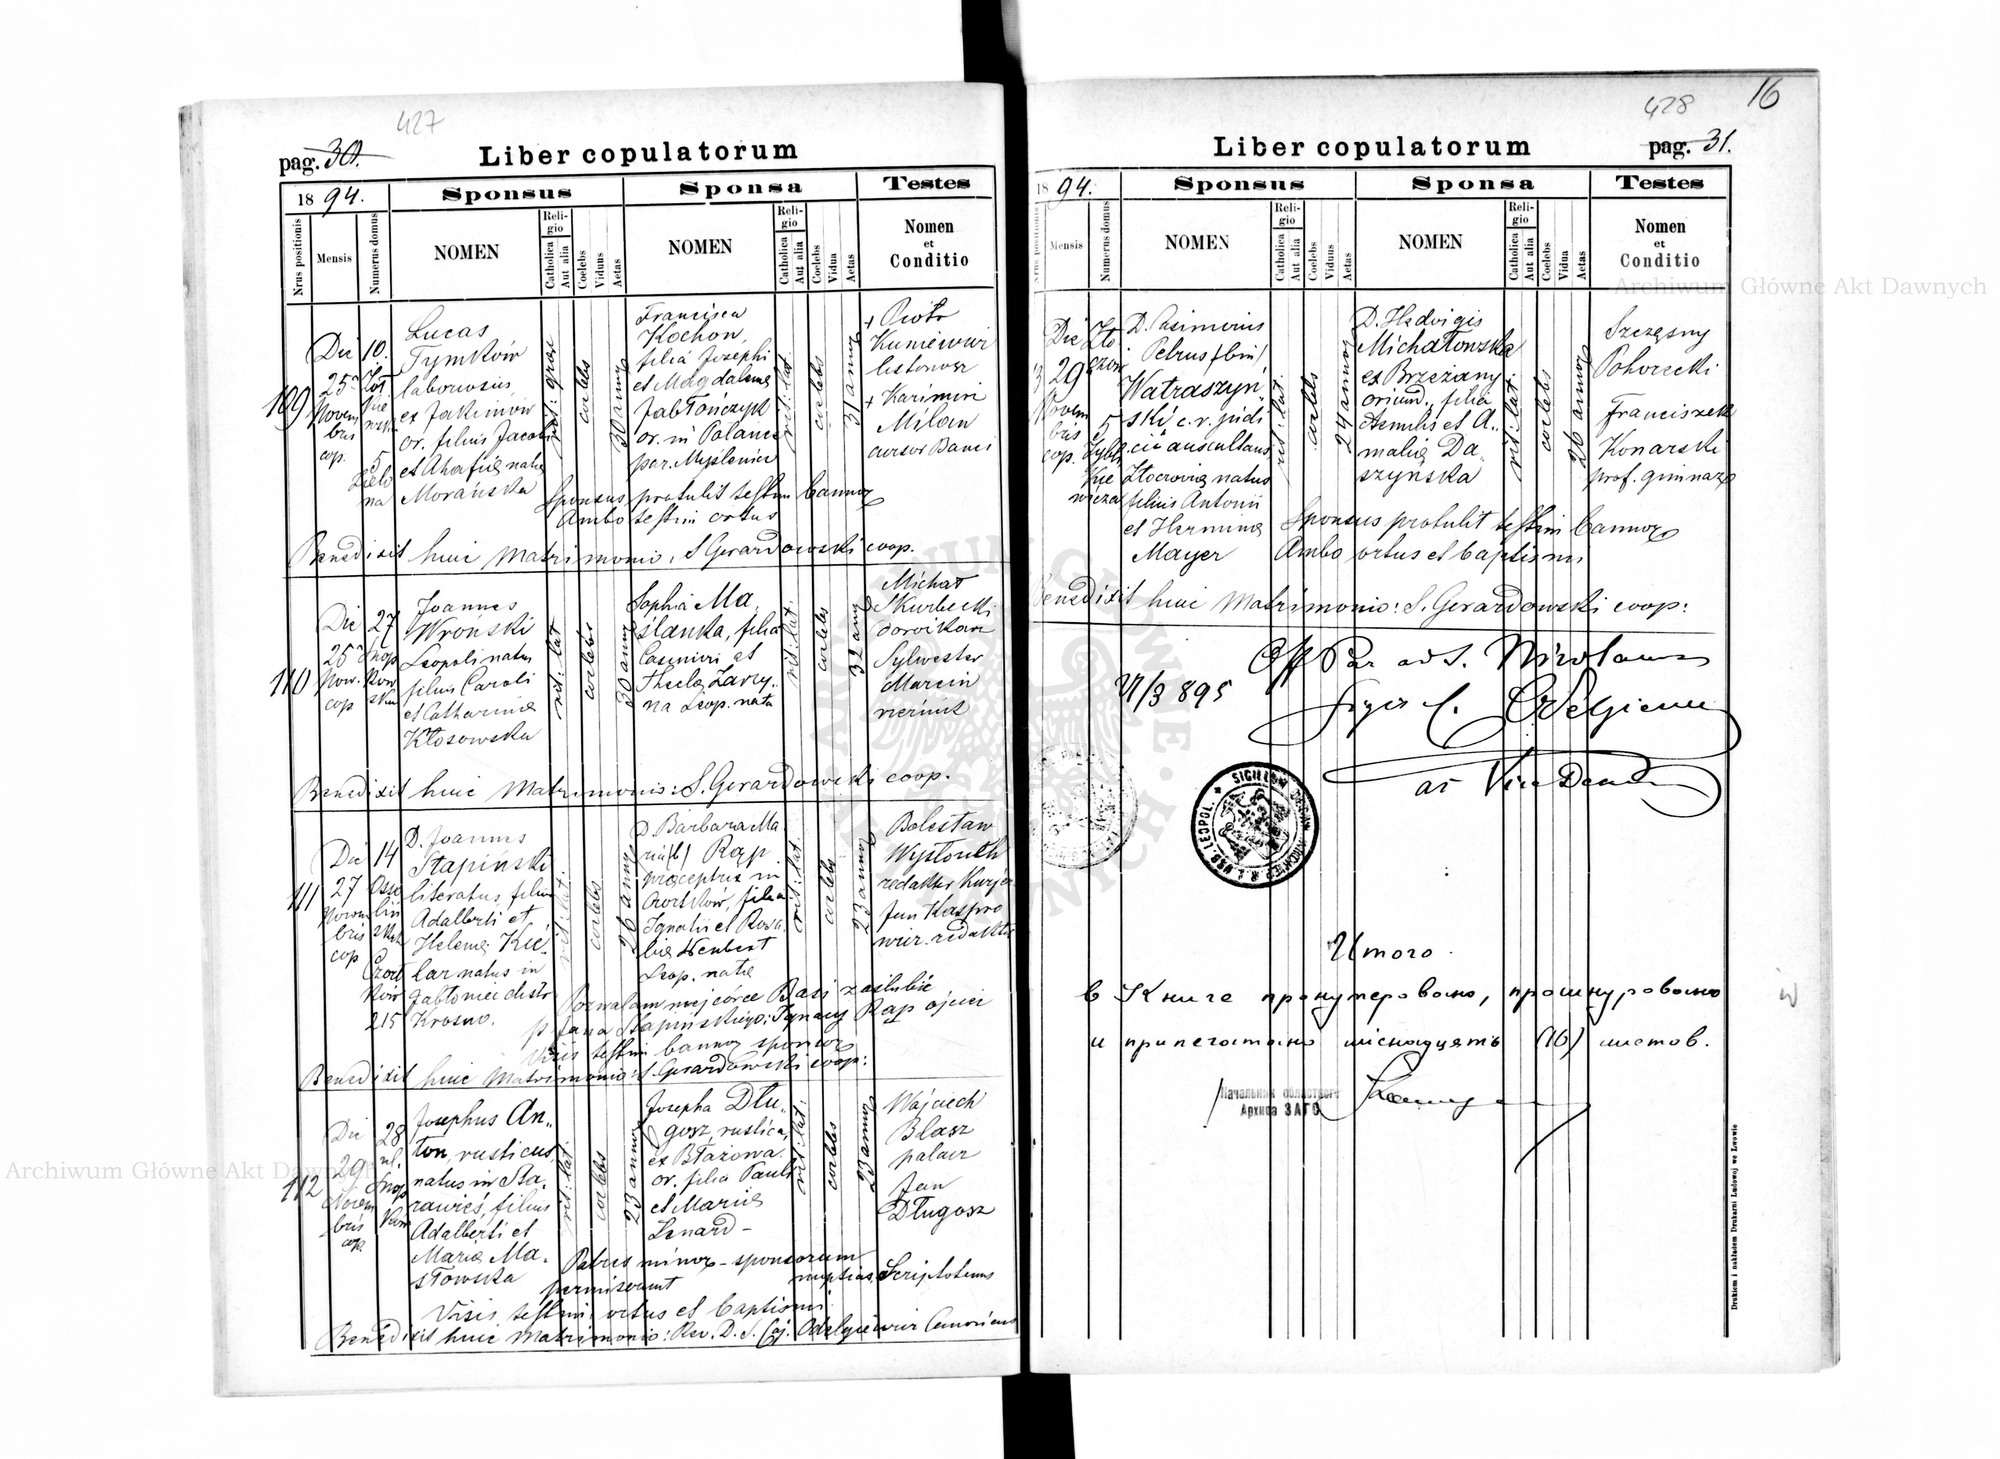 427
pag. 30.
Liber copulatorum
1894.
Sponsus
Sponsa
Testes
Nrus positionis
Mensis
Numerus domus
NOMEN
Religio
Catholica
Aut alia
Coelebs
Viduus
Aetas
NOMEN
Religio
Catholica
Aut alia
Coelebs
Vidua
Aetas
Nomen
et
Conditio
109
Die
25
Novem
bris
cop.
10.
5
Lucas
Tymków
laboriosus,
ex Jaktmów
or. filius Jacobi
et Ahafię natę
Morańska
rit: graec
coelebs
30 annor
Francisca
Kochon,
filia Josephi
et Magdalenę
Jabłończyk
or. in Polanka
par. Myślenice
rit: lat.
coelebs
31 annor
+ Piotr
Kuniewicz
listonosz
+ Kazimir
Milan
cursor Banci
Sponsus protulit testim bannor
Ambo testim ortus
Benedixit huic Matrimonio: S Gerardowski coop.
110
Die
25
Nov.
cop
27
Snop
kow
ska
Joannes
Wroński
Leopoli natus
filius Caroli
et Catharinę
Kłosowska
rit: lat
coelebs
30 annor
Sophia Ma
ślanka, filia
Casimiri et
Theclę Zarzy-
na Leop. nata
rit: lat.
coelebs
32 annor
Michał
Skurbecki
dorożkarz
Sylwester
Marcin
Benedixit huic Matrimonio: S. Gerardowski coop.
111
Die
27
Novem
bris
cop
14
Osso
liń
skich
Czort
ków
215
D. Joannes
Stapinski
literatus, filius
Adalberti et
Helenę Kie-
lar natus in
Jabłonica distr
Krosno.
rit: lat.
coelebs
26 annor
D. Barbara Ma
ria (b) Rąp
pręceptrix in
Czortków, filia
Ignatii et Rosa
lię Neubert
Leop. natę
rit: lat
coelebs
23 annor
Bolesław
Wysłouch
redaktor Kurjer
Jan Kaspro
wicz. redaktor
Pozwalam mej córce Basi zaślubić
p. Jana Stapińskiego: Ignacy Rąp ojciec
Visis testim bannor sponsor
Benedixit huic Matrimonio: S. Gerardowski coop:
112
Die
29
Novem
bris
cop.
28
ul.
Snop
kow
Josephus An-
ton, rusticus,
natus in Sta-
rawieś, filius
Adalberti et
Marię Ma-
słowska
rit: lat
coelebs
23 annor
Josepha Dłu-
gosz, rustica,
ex Błażowa
or. filia Pauli
et Marię
Lenard -
rit: lat:
coelebs
23 annor
Wojciech
Blasz
palacz
Jan
Długosz
Patres minor - sponsorum
permiserunt nuptias
Visis testim. ortus et baptismi
Benedixit huic Matrimonio: Rev. D. S. Caj. Odelgiewicz Canonicus
428
16
Liber copulatorum
pag. 31.
1894.
Sponsus
Sponsa
Testes
Nrus positionis
Mensis
Numerus domus
NOMEN
Religio
Catholica
Aut alia
Coelebs
Viduus
Aetas
NOMEN
Religio
Catholica
Aut alia
Coelebs
Vidua
Aetas
Nomen
et
Conditio
Die
29
Novem
bris
cop.
Zło
czów
5
Zybli
kie
wicza
D. Casimirus
Petrus (bin)
Watraszyń-
ski c. r. judi
cii auscultans
Złoczovię natus
filius Antonii
et Herminę
Mayer
rit: lat.
coelebs
24 annor
D. Hedvigis
Michałowska
ex Brzeżany
oriund., filia
Aemilis et A-
malię Da-
szyńska
rit: lat.
coelebs
26 annor
Szczęsny
Pohorecki
Franciszek
Konarski
prof. gimnaz
Sponsus protulit testim bannor
Ambo ortus et baptismi
Benedixit huic Matrimonio: S. Gerardowski coop:
Off Par ad S. Nicolaum
21/3 895
Итого
в Книге пронумеровано, прошнуровано
и припечатано шіснадцять (16) листов.
Начальник областного
Архива ЗАГС
Drukiem i nakładem Drukarni Ludowej we Lwowie
Archiwum Główne Akt Dawnych
Archiwum Główne Akt Dawnych